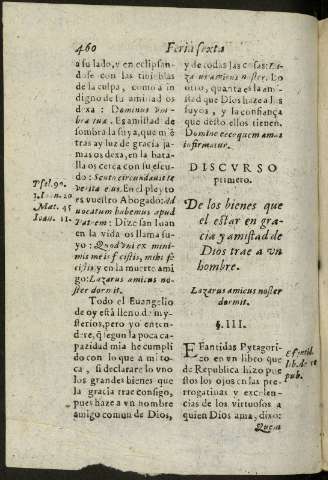 460
Feria sexta
a su lado, y en eclipsan-
dose con las tinieblas
de la culpa, como a in
digno de su amistad os
dexa: Dominus vm-
bra tua. Es amistad de
sombra la suya, que miē
tras ay luz de gracia ja-
mas os dexa, en la bata-
lla os cerca con su escu-
do: Scuto circundauit te
veritas eius. En el pleyto
es vuestro Abogado: Ad
uocatum habemus apud
Patrem: Dize san Iuan
en la vida os llama su-
yo: Quod vni ex mini-
mis meis fecistis, mihi fe
cistis y en la muerte ami
go: Lazarus amicus no-
ster dormit.
Todo el Euangelio
de oy está lleno de my-
sterios, pero yo enten-
dere, q̃ segun la poca ca-
pazidad mia he cumpli
do con lo que a mi to-
ca, si declarare lo vno
los grandes bienes que
la gracia trae consigo,
pues haze a vn hombre
amigo comun de Dios,
Psal. 90.
Mat.
Ioan. 11.
y de todas las cosas: La-
zarus amicus noster. Lo
otro, quanta es la ami-
stad que Dios haze a los
suyos, y la confiança
que desto ellos tienen.
Domine ecce quem amas
infirmatur.
DISCVRSO
primero.
De los bienes que
el estar en gra-
cia y amistad de
Dios trae a vn
hombre.
Lazarus amicus noster
dormit.
§. III.
EFantidas Pytagori-
zo en vn libro que
de Republica hizo pue
stos los ojos en las pre-
rrogatiuas y excelen-
cias de los virtuosos a
quien Dios ama, dixo:
Efantid.
lib. de re
pub.
Quem